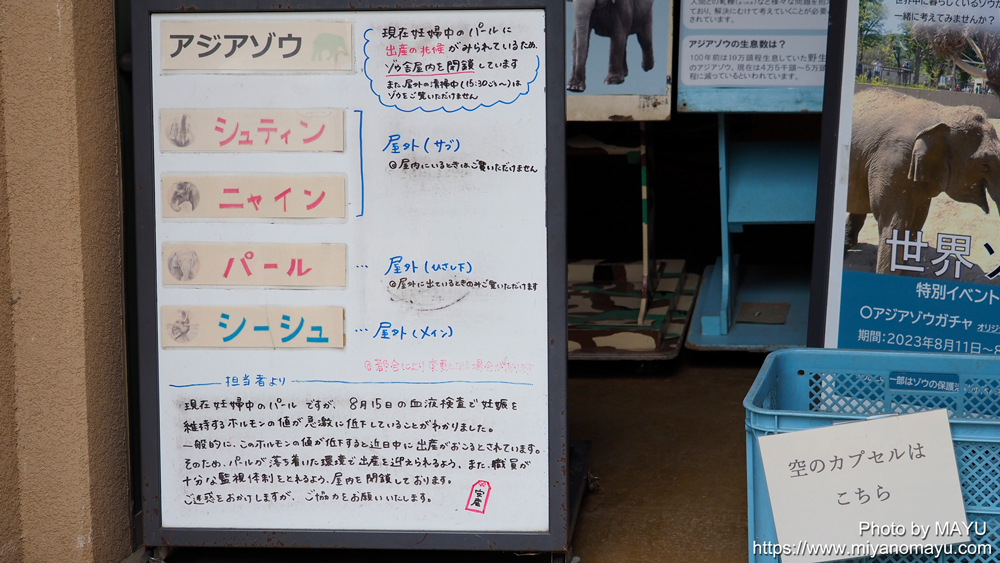 アジアゾウ
現在妊婦中のパールに
出産の兆候がみられているため、
ゾウ舎屋内を閉鎖しています
また屋外の清掃中(15:30ごろ〜)は
ゾウをご覧いただけません
シュティン
ニャイン
屋外(サブ)
※屋内にいるときはご覧いただけません
パール
… 屋外(ひさし下)
※屋外に出ているときのみご覧いただけます
シーシュ
… 屋外(メイン)
※都合により変更になる場合があります
担当者より
現在妊婦中のパールですが、8月15日の血液検査で妊娠を
維持するホルモンの値が急激に低下していることがわかりました。
一般的に、このホルモンの値が低下すると近日中に出産がおこるとされています。
そのため、パールが落ち着いた環境で出産を迎えられるよう、また、職員が
十分な監視体制をとれるよう、屋内を閉鎖しております。
ご迷惑をおかけしますが、ご協力をお願いいたします。
安産
ており、解決にむけて考えていくことが必要
されています。
アジアゾウの生息数は?
100年前は10万頭程生息していた野生
のアジアゾウ。現在は4万5千頭〜5万頭
程に減っているといわれています。
世界中に暮らしているゾウが
一緒に考えてみませんか?
世界ゾ
特別イベント
〇アジアゾウガチャ オリジ
期間:2023年8月11日〜8
一部はゾウの保護
空のカプセルは
こちら
Photo by MAYU
https://www.miyanomayu.com